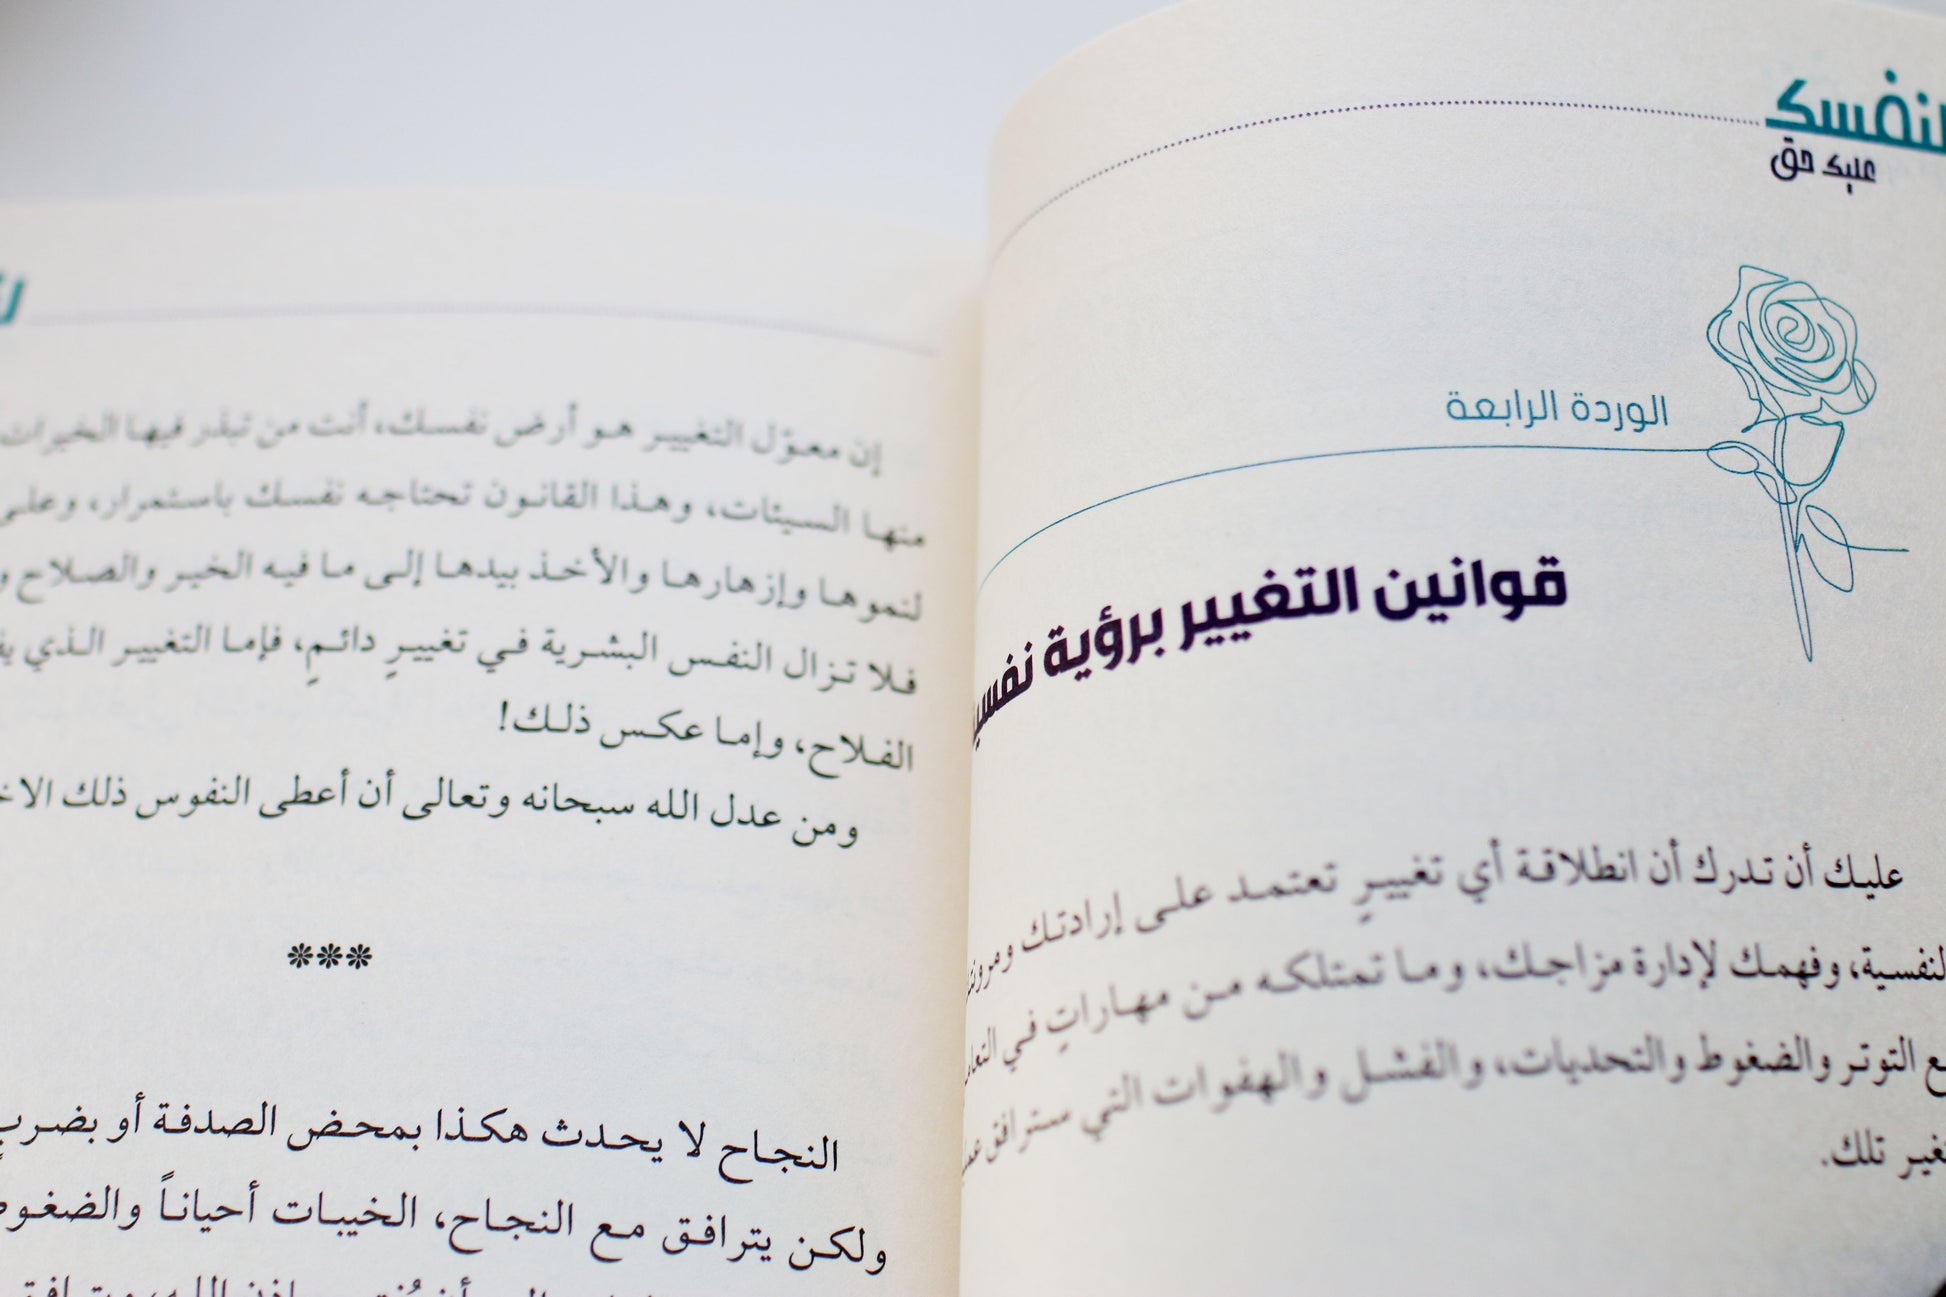 لنفسك
عليك حق
الوردة الرابعة
قوانين التغيير برؤية
عليك أن تدرك أن انطلاقة أي تغييرٍ تعتمد على إرادتك
النفسية، وفهمك لإدارة مزاجك، وما تمتلكه من مهاراتٍ في
التوتر والضغوط والتحديات، والفشل والهفوات التي سترافق
تلك.
إن معوّل التغيير هو أرض نفسك، أنت من تبذر فيها الخيرات
منها السيئات، وهذا القانون تحتاجه نفسك باستمرار، وعلى
لنموها وإزهارها والأخذ بيدها إلى ما فيه الخير والصلاح
فلا تزال النفس البشرية في تغييرٍ دائمٍ، فإما التغيير الذي
الفلاح، وإما عكس ذلك!
ومن عدل الله سبحانه وتعالى أن أعطى النفوس ذلك
***
النجاح لا يحدث هكذا بمحض الصدفة أو
ولكن يترافق مع النجاح، الخيبات أحياناً